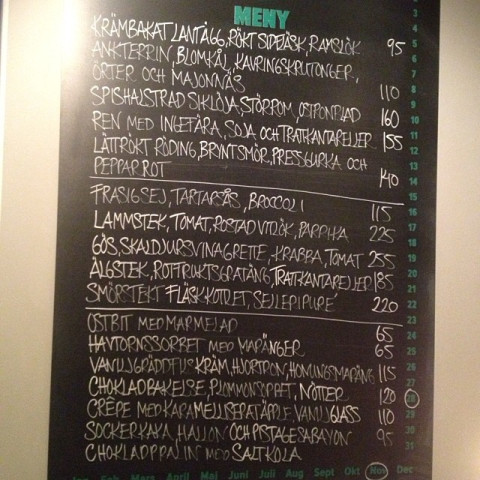 MENY
KRÄMBAKAT LANTÄGG, RÖKT SIDFLÄSK, RAMSLÖK 95
ANKTERRIN, BLOMKÅL, KAVRINGSKRUTONGER,
ÖRTER OCH MAJONNÄS 110
SPISHALSTRAD SIKLÖJA, STÖRROM, OSTPONPLAD 160
REN MED INGEFÄRA, SOJA OCH TRATTKANTARELLER 155
LÄTTRÖKT RÖDING, BRYNT SMÖR, PRESSGURKA OCH
PEPPARROT 140
FRASIG SEJ, TARTARSÅS, BROCCOLI 115
LAMMSTEK, TOMAT, ROSTAD VITLÖK, PAPRIKA 225
GÖS, SKALDJURSVINAGRETTE, KRABBA, TOMAT 255
ÄLGSTEK, ROTFRUKTSGRATÄNG, TRATTKANTARELLER 185
SMÖRSTEKT FLÄSKKOTLET, SELLERIPURÉ 220
OSTBIT MED MARMELAD 65
HAVTORNSSORBET MED MARÄNGER 65
VANILJGRÄDDFILSKRÄM, HJORTRON, HONUNGSMARÄNG 115
CHOKLADBAKELSE, PLOMMONSORBET, NÖTTER 120
CRÊPE MED KARAMELLISERAT ÄPPLE, VANILJGLASS 110
SOCKERKAKA, HALLON OCH PISTAGESABAYON 95
CHOKLADPRALIN MED SALTKOLA
3
4
5
6
7
8
9
10
11
12
13
14
15
16
17
18
19
20
21
22
23
24
25
26
27
28
29
30
31
Mars April Maj Juni Juli Aug Sept Okt Nov Dec